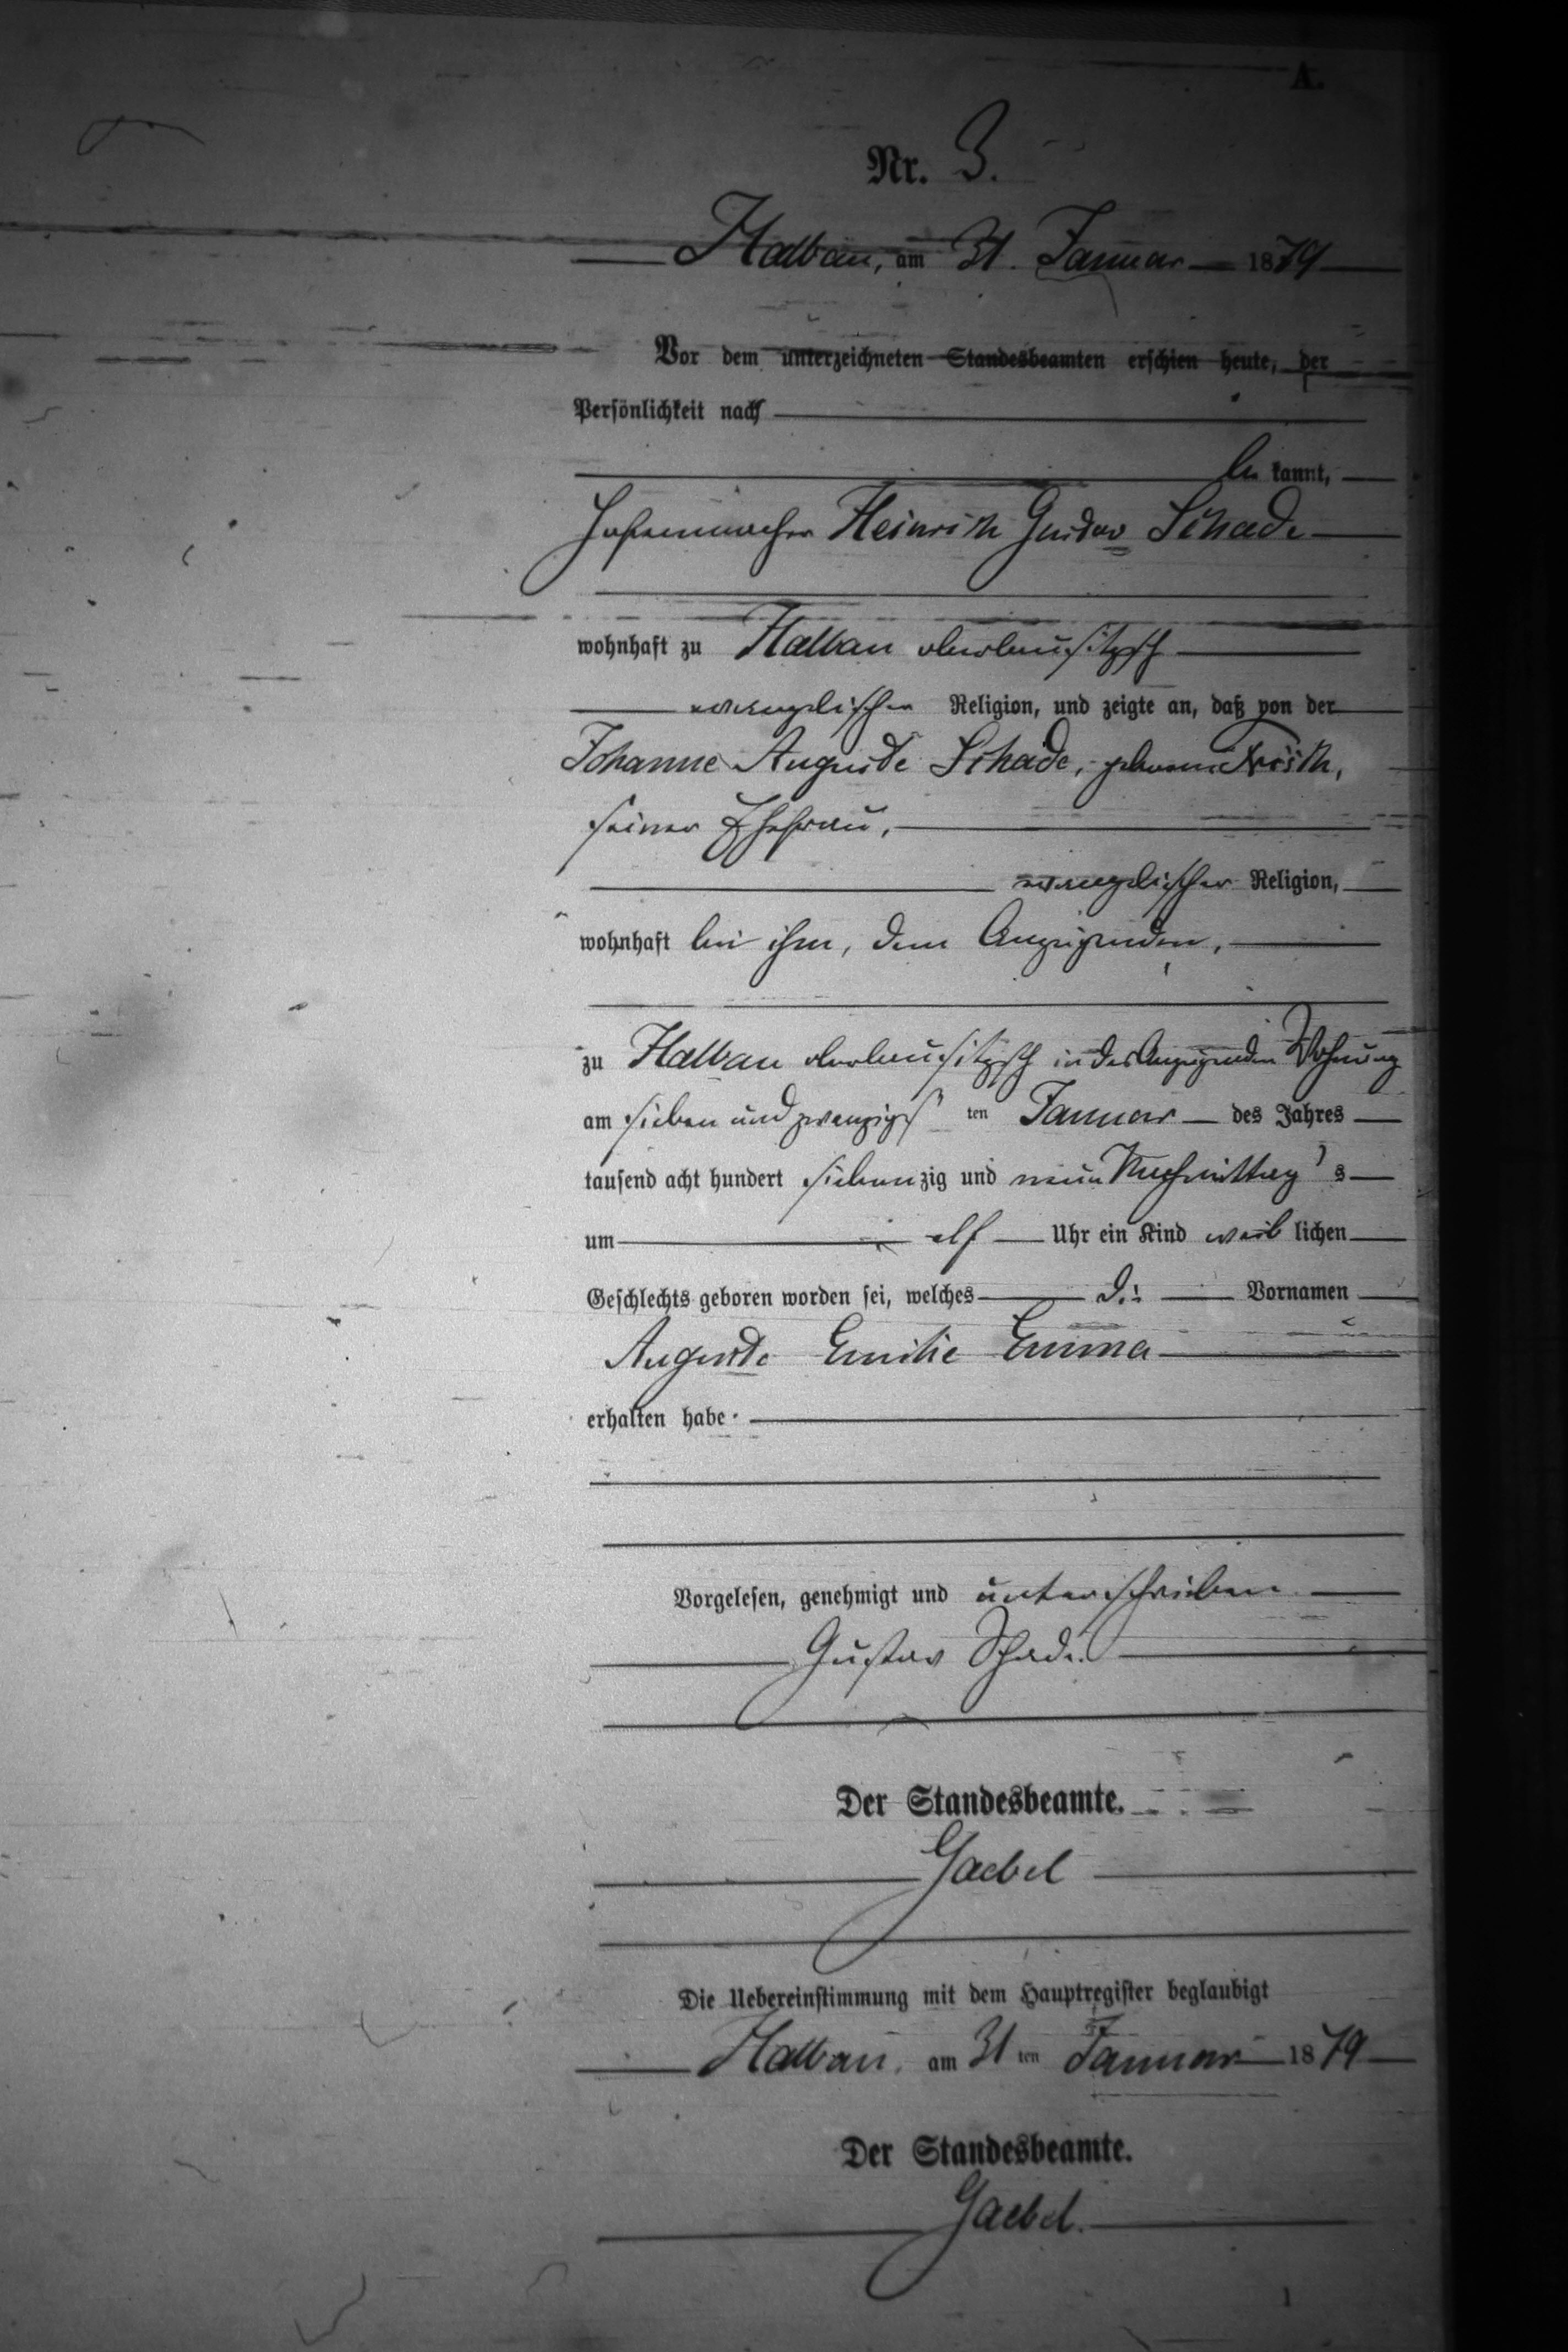 A.
Nr. 3.
Halbau, am 31. Januar 1879
Vor dem unterzeichneten Standesbeamten erschien heute, der
Persönlichkeit nach
be kannt,
Heinrich Gustav Schade
wohnhaft zu Halbau oberlausitzsch
evangelischer Religion, und zeigte an, daß von der
Johanne Auguste Schade, geborene
seiner Ehefrau,
evangelischer Religion,
wohnhaft bei ihm, dem Anzeigenden,
zu Halbau oberlausitzsch in des Anzeigenden Wohnung
am sieben und zwanzigs ten Januar des Jahres
tausend acht hundert sieben zig und neun Nachmittag s
um elf Uhr ein Kind weib lichen
Geschlechts geboren worden sei, welches die Vornamen
Auguste Emilie Emma
erhalten habe.
Vorgelesen, genehmigt und unterschrieben.
Gustav Schade.
Der Standesbeamte.
Gaebel
Die Uebereinstimmung mit dem Hauptregister beglaubigt
Halbau, am 31 ten Januar 1879
Der Standesbeamte.
Gaebel.